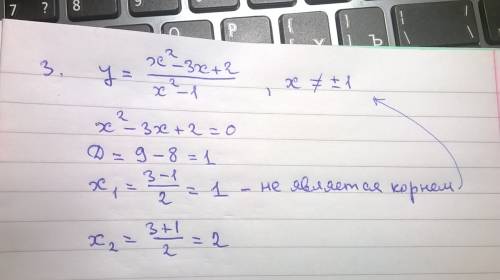 7 ? 8 9
Ъ
3. y = (x² - 3x + 2)/(x² - 1) , x ≠ ±1
x² - 3x + 2 = 0
D = 9 - 8 = 1
x₁ = (3-1)/2 = 1 - не является корнем
x₂ = (3+1)/2 = 2